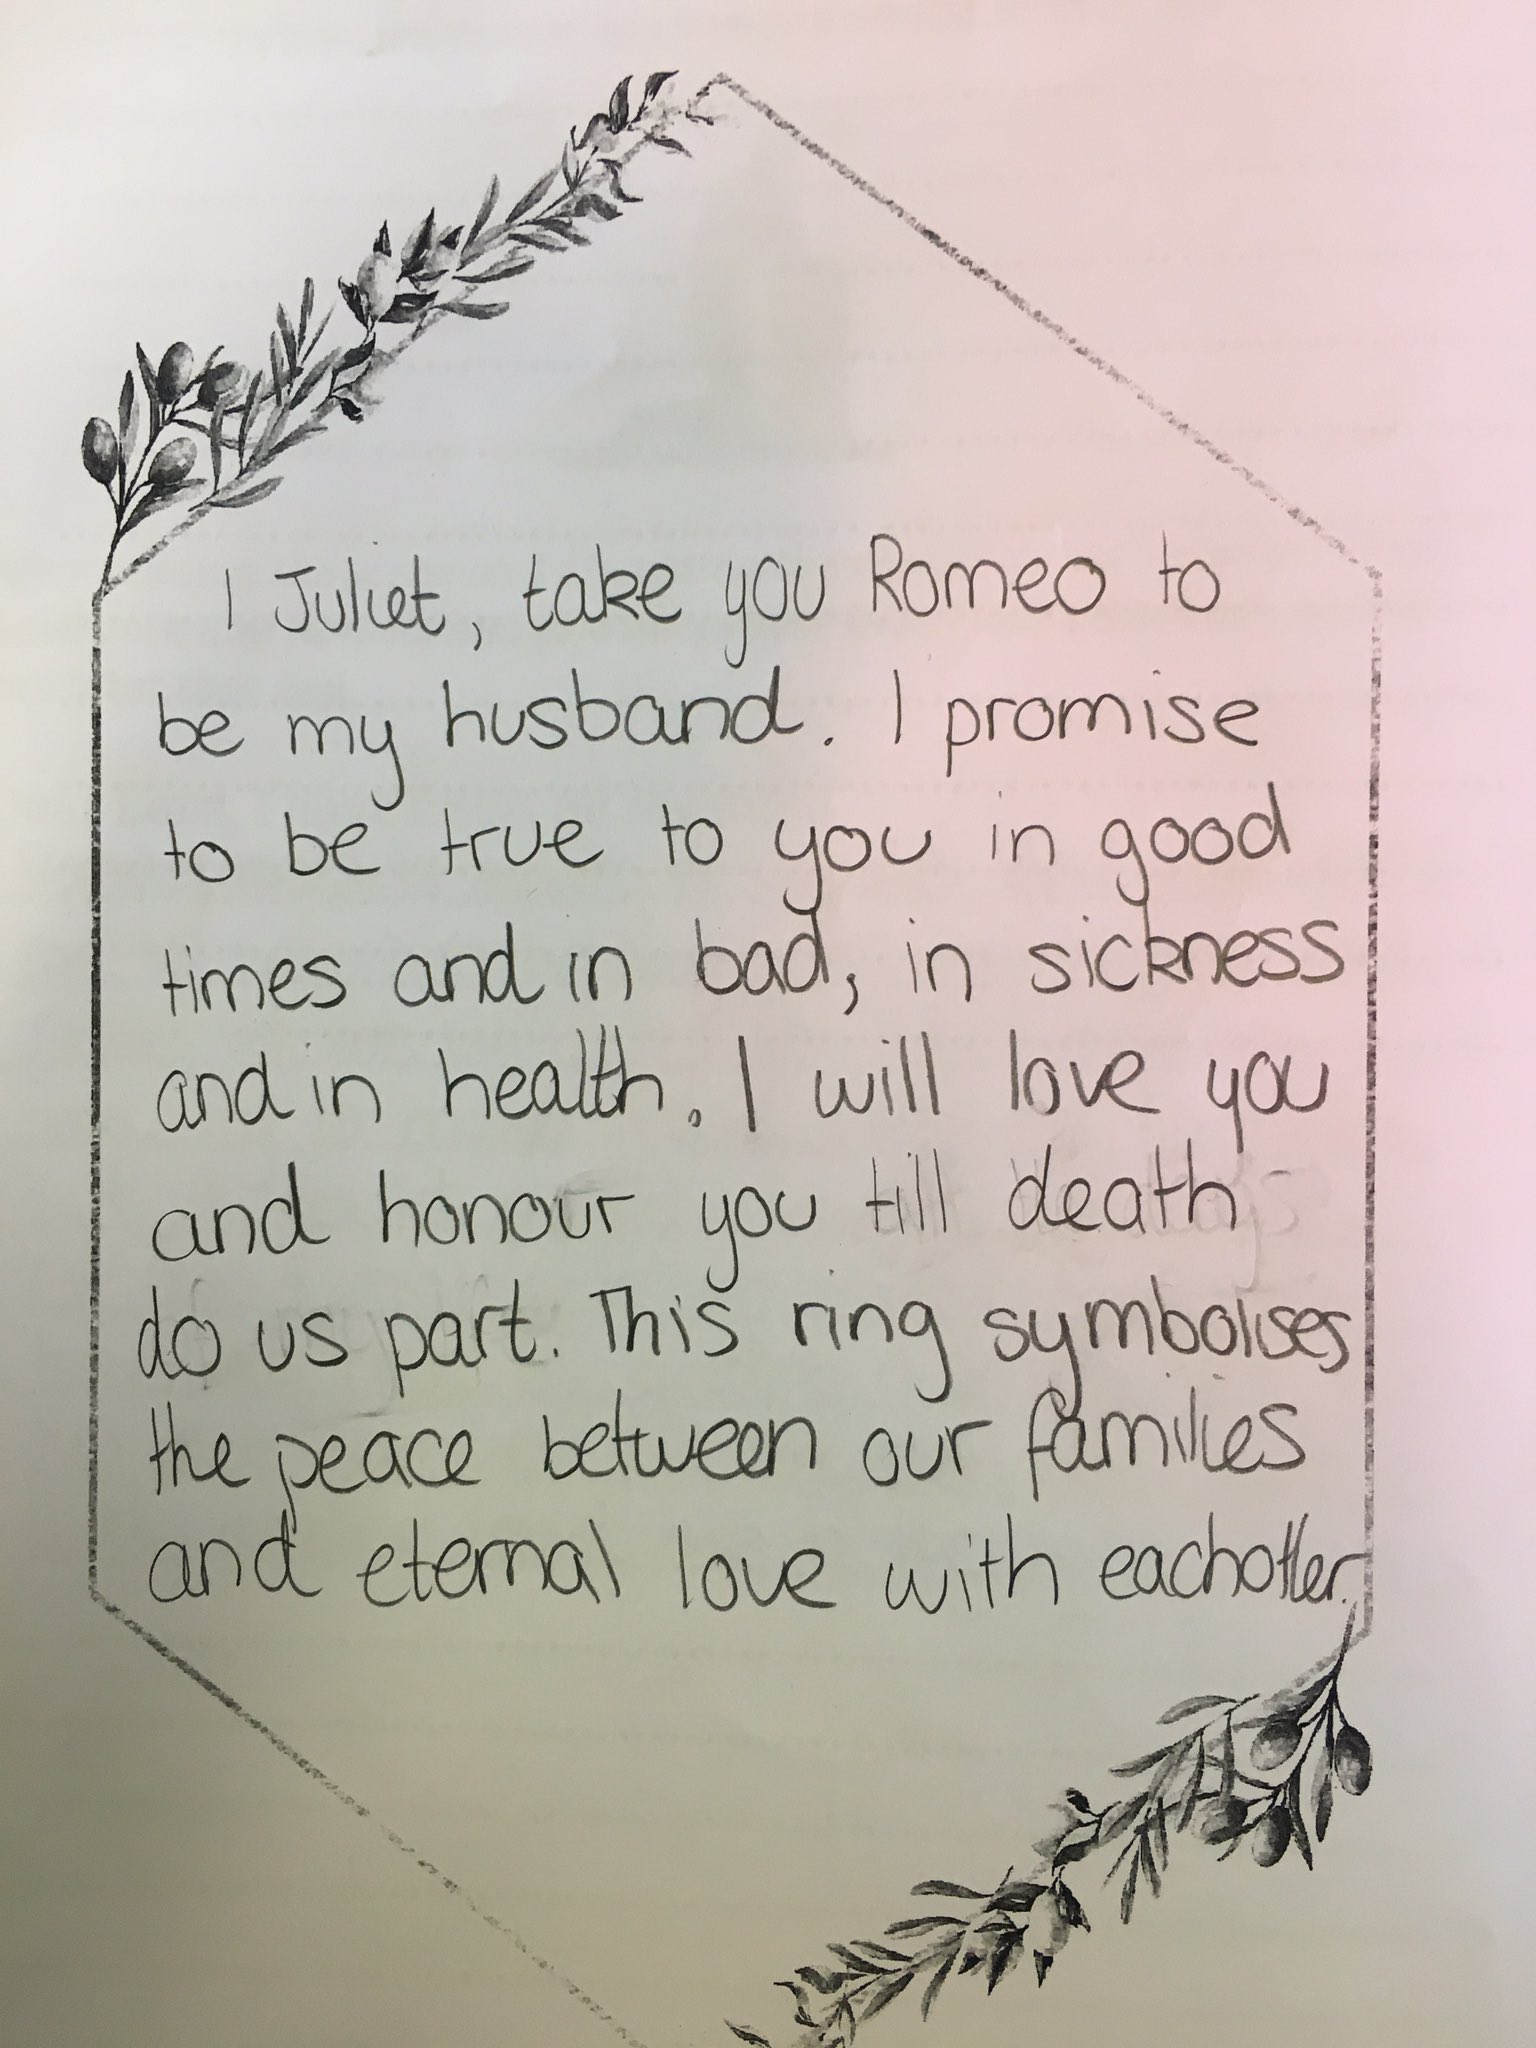 I Juliet, take you Romeo to
be my husband. I promise
to be true to you in good
times and in bad, in sickness
and in health. I will love you
and honour you till death
do us part. This ring symbolises
the peace between our families
and eternal love with eachother.